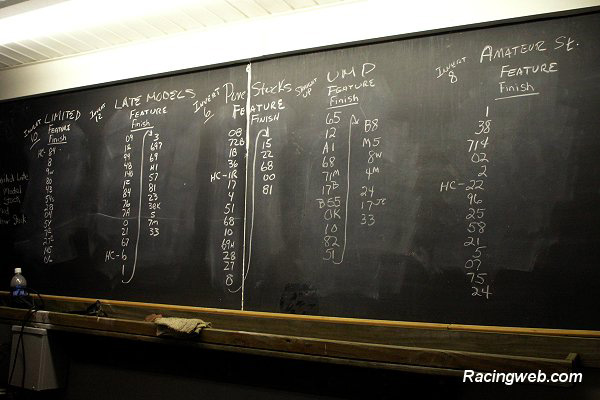 INVERT
10
LIMITED
FEATURE
Finish
HC- 84
8
INVERT
12
LATE MODELS
FEATURE
Finish
09
18
44
12
84
76
7A
0
21
67
HC- 6
1
3
69
M1
57
81
23
5
7M
33
INVERT
6
PURE STOCKS
FEATURE
FINISH
08
72B
1B
36
HC-1R
17
4
51
68
10
69W
28
27
8
15
22
68
00
81
STRAIGHT
UP
UMP
FEATURE
Finish
65
12
A1
68
71M
17B
B55
OK
10
82
51
B8
M5
8W
4M
24
17JR
33
INVERT
8
AMATEUR St.
FEATURE
Finish
1
38
714
02
2
HC-22
96
25
58
21
5
07
75
24
Racingweb.com